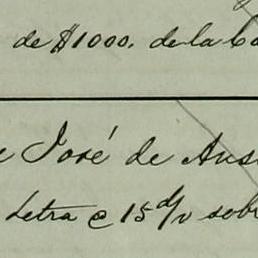 de $1000. de la Ca
e José de Aus
Letra @ 15 d/v sobr